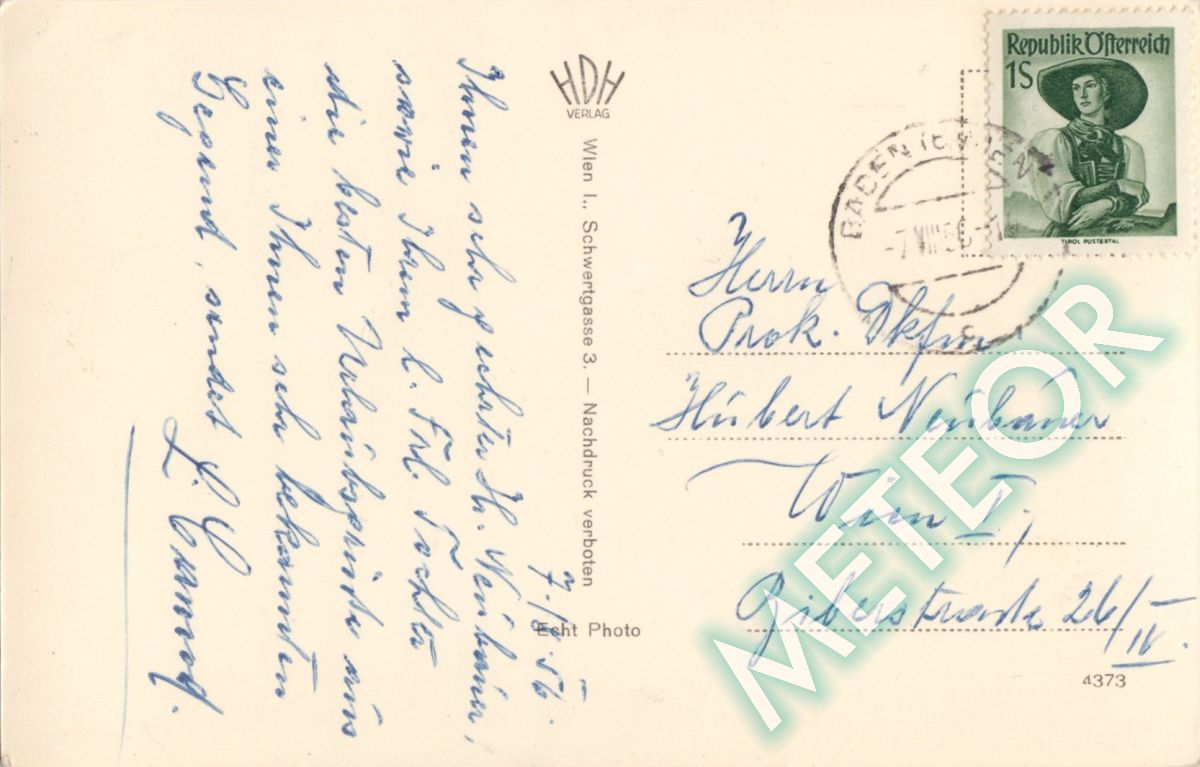 Ihnen sehr geehrter H. Neubauer,
sowie Ihrem l. Frl. Tochter
die besten Urlaubsgrüße aus
einer Ihnen sehr bekannten
Gegend, sendet
7. 8. 56.
HDH
VERLAG
Wien I., Schwertgasse 3. — Nachdruck verboten
Echt Photo
Republik Österreich
1S
TIROL PUSTERTAL
BADEN
-7.VIII.56
c
Herrn
Prok. Dkfm
Hubert Neubauer
Wien I,
Biberstrasse 26/IV.
4373
METEOR